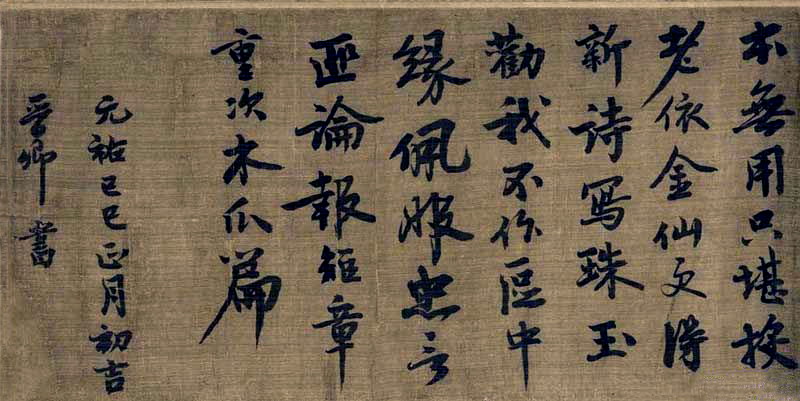 本無用只堪投
老依金仙更得
新詩寫珠玉
勸我不作區中
緣佩服忠言
匪論報短章
重次木瓜篇
元祐己巳正月初吉
晉卿書